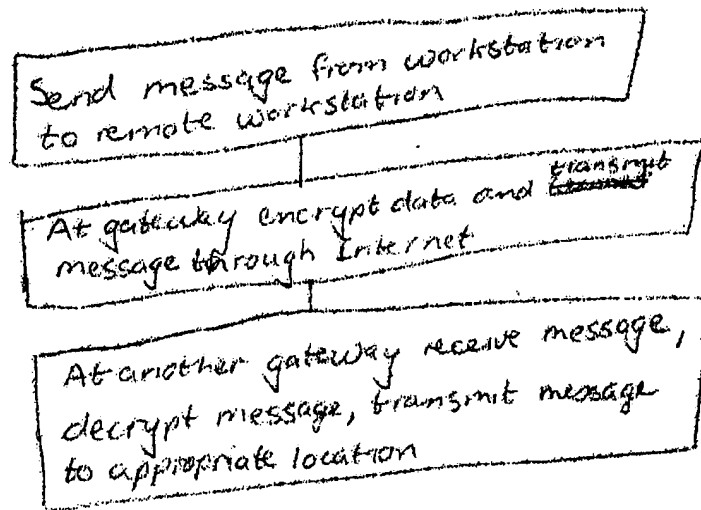 Send message from workstation
to remote workstation
At gateway encrypt data and transmit
message through Internet
At another gateway receive message,
decrypt message, transmit message
to appropriate location